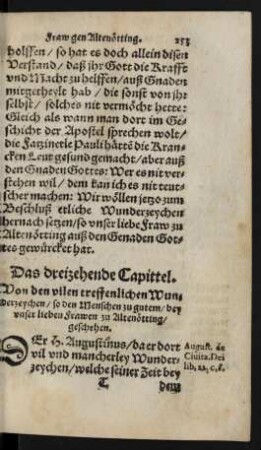 Fraw gen Altenötting. 253
holffen / so hat es doch allein disen
Verstand / daß jhr Gott die Krafft
vnd Macht zu helffen / auß Gnaden
mitgetheylt hab / die sonst von jhr
selbst / solches nit vermöcht hette:
Gleich als wann man dort im Ge-
schicht der Apostel sprechen wolt /
die Fatzinetle Pauli hättẽ die Kran-
cken Leut gesund gemacht / aber auß
den Gnaden Gottes: Wer es nit ver-
stehen wil / dem kan ich es nit teut-
scher machen: Wir wöllen jetzo zum
Beschluß etliche Wunderzeychen
hernach setzen / so vnser liebe Fraw zu
Altenötting auß den Genaden Got-
tes gewürcket hat.
Das dreizehende Capittel.
Von den vilen treffenlichen Wun-
derzeychen / so den Menschen zu gutem / bey
vnser lieben Frawen zu Altenötting /
geschehen.
DEr H. Augustinus / da er dort
vil vnd mancherley Wunder-
zeychen / welche seiner Zeit bey
August. de
Ciuita. Dei
lib. 22. c. 8.
T
dem